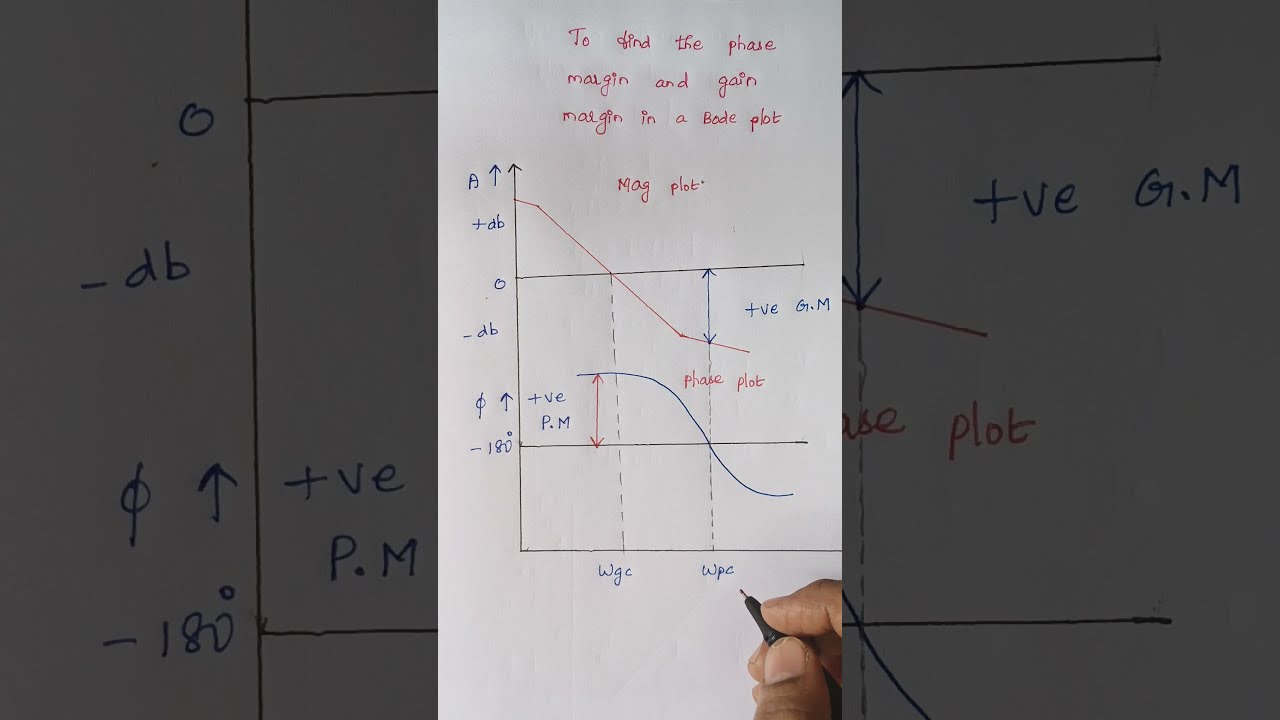 To find the phase
margin and gain
margin in a Bode plot
A ↑
Mag plot
+db
0
+ve G.M
-db
phase plot
ϕ ↑ +ve
P.M
-180°
Wgc Wpc
0
-db
ϕ ↑ +ve
P.M
-180°
+ve G.M
ase plot